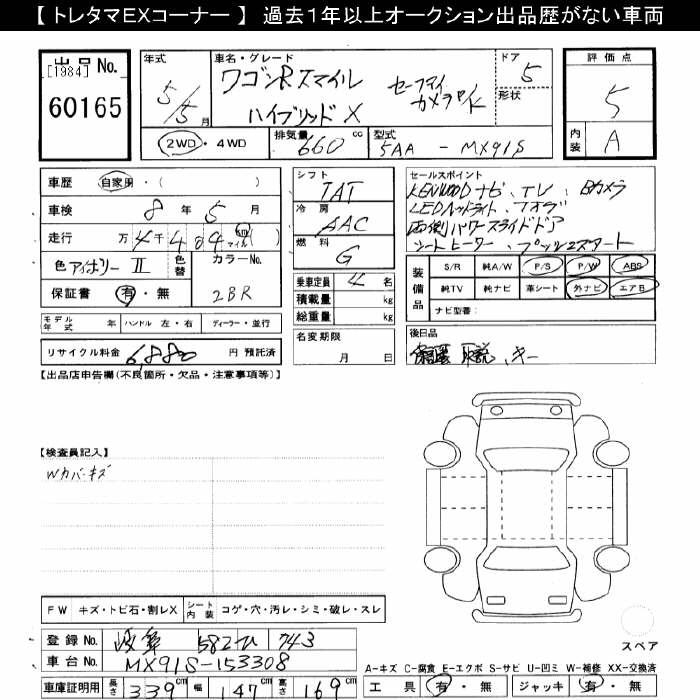 【 トレタマEXコーナー 】 過去1年以上オークション出品歴がない車両
出品 No.
[1984]
60165
年式
5/5月
車名・グレード
ワゴンRスマイル
ハイブリッドX
セーフティ
カメラP/K
ドア
5
形状
評価点
5
内装
A
2WD・4WD
排気量 660 cc
型式 5AA - MX91S
車歴 自家用・( )
車検 8年 5月
走行 万 4千404 km マイル( )
色 アイボリーII 色替 カラーNo.
2BR
保証書 有・無
モデル年式 年 ハンドル 左・右 ディーラー・並行
リサイクル料金 6880 円 預託済
シフト
IAT
冷房
AAC
燃料
G
乗車定員 4 名
積載量 kg
総重量 kg
名変期限
月 日
セールスポイント
KENWOODナビ、TV、Bカメラ
LEDヘッドライト、フォグ
両側パワースライドドア
シートヒーター、プッシュスタート
装備品
S/R 純A/W P/S P/W ABS
純TV 純ナビ 革シート 外ナビ エアB
ナビ型番:
後日品
保証書 取説、キー
【出品店申告欄(不良箇所・欠品・注意事項等)】
【検査員記入】
Wカバーキズ
FW キズ・トビ石・割レX シート内装 コゲ・穴・汚レ・シミ・破レ・スレ
登録No. 岐阜 582 743
車台No. MX91S-153308
車庫証明用 長さ 339cm 幅 147cm 高さ 169cm
スペア
A-キズ C-腐食 E-エクボ S-サビ U-凹ミ W-補修 XX-交換済
工具 有・無 ジャッキ 有・無